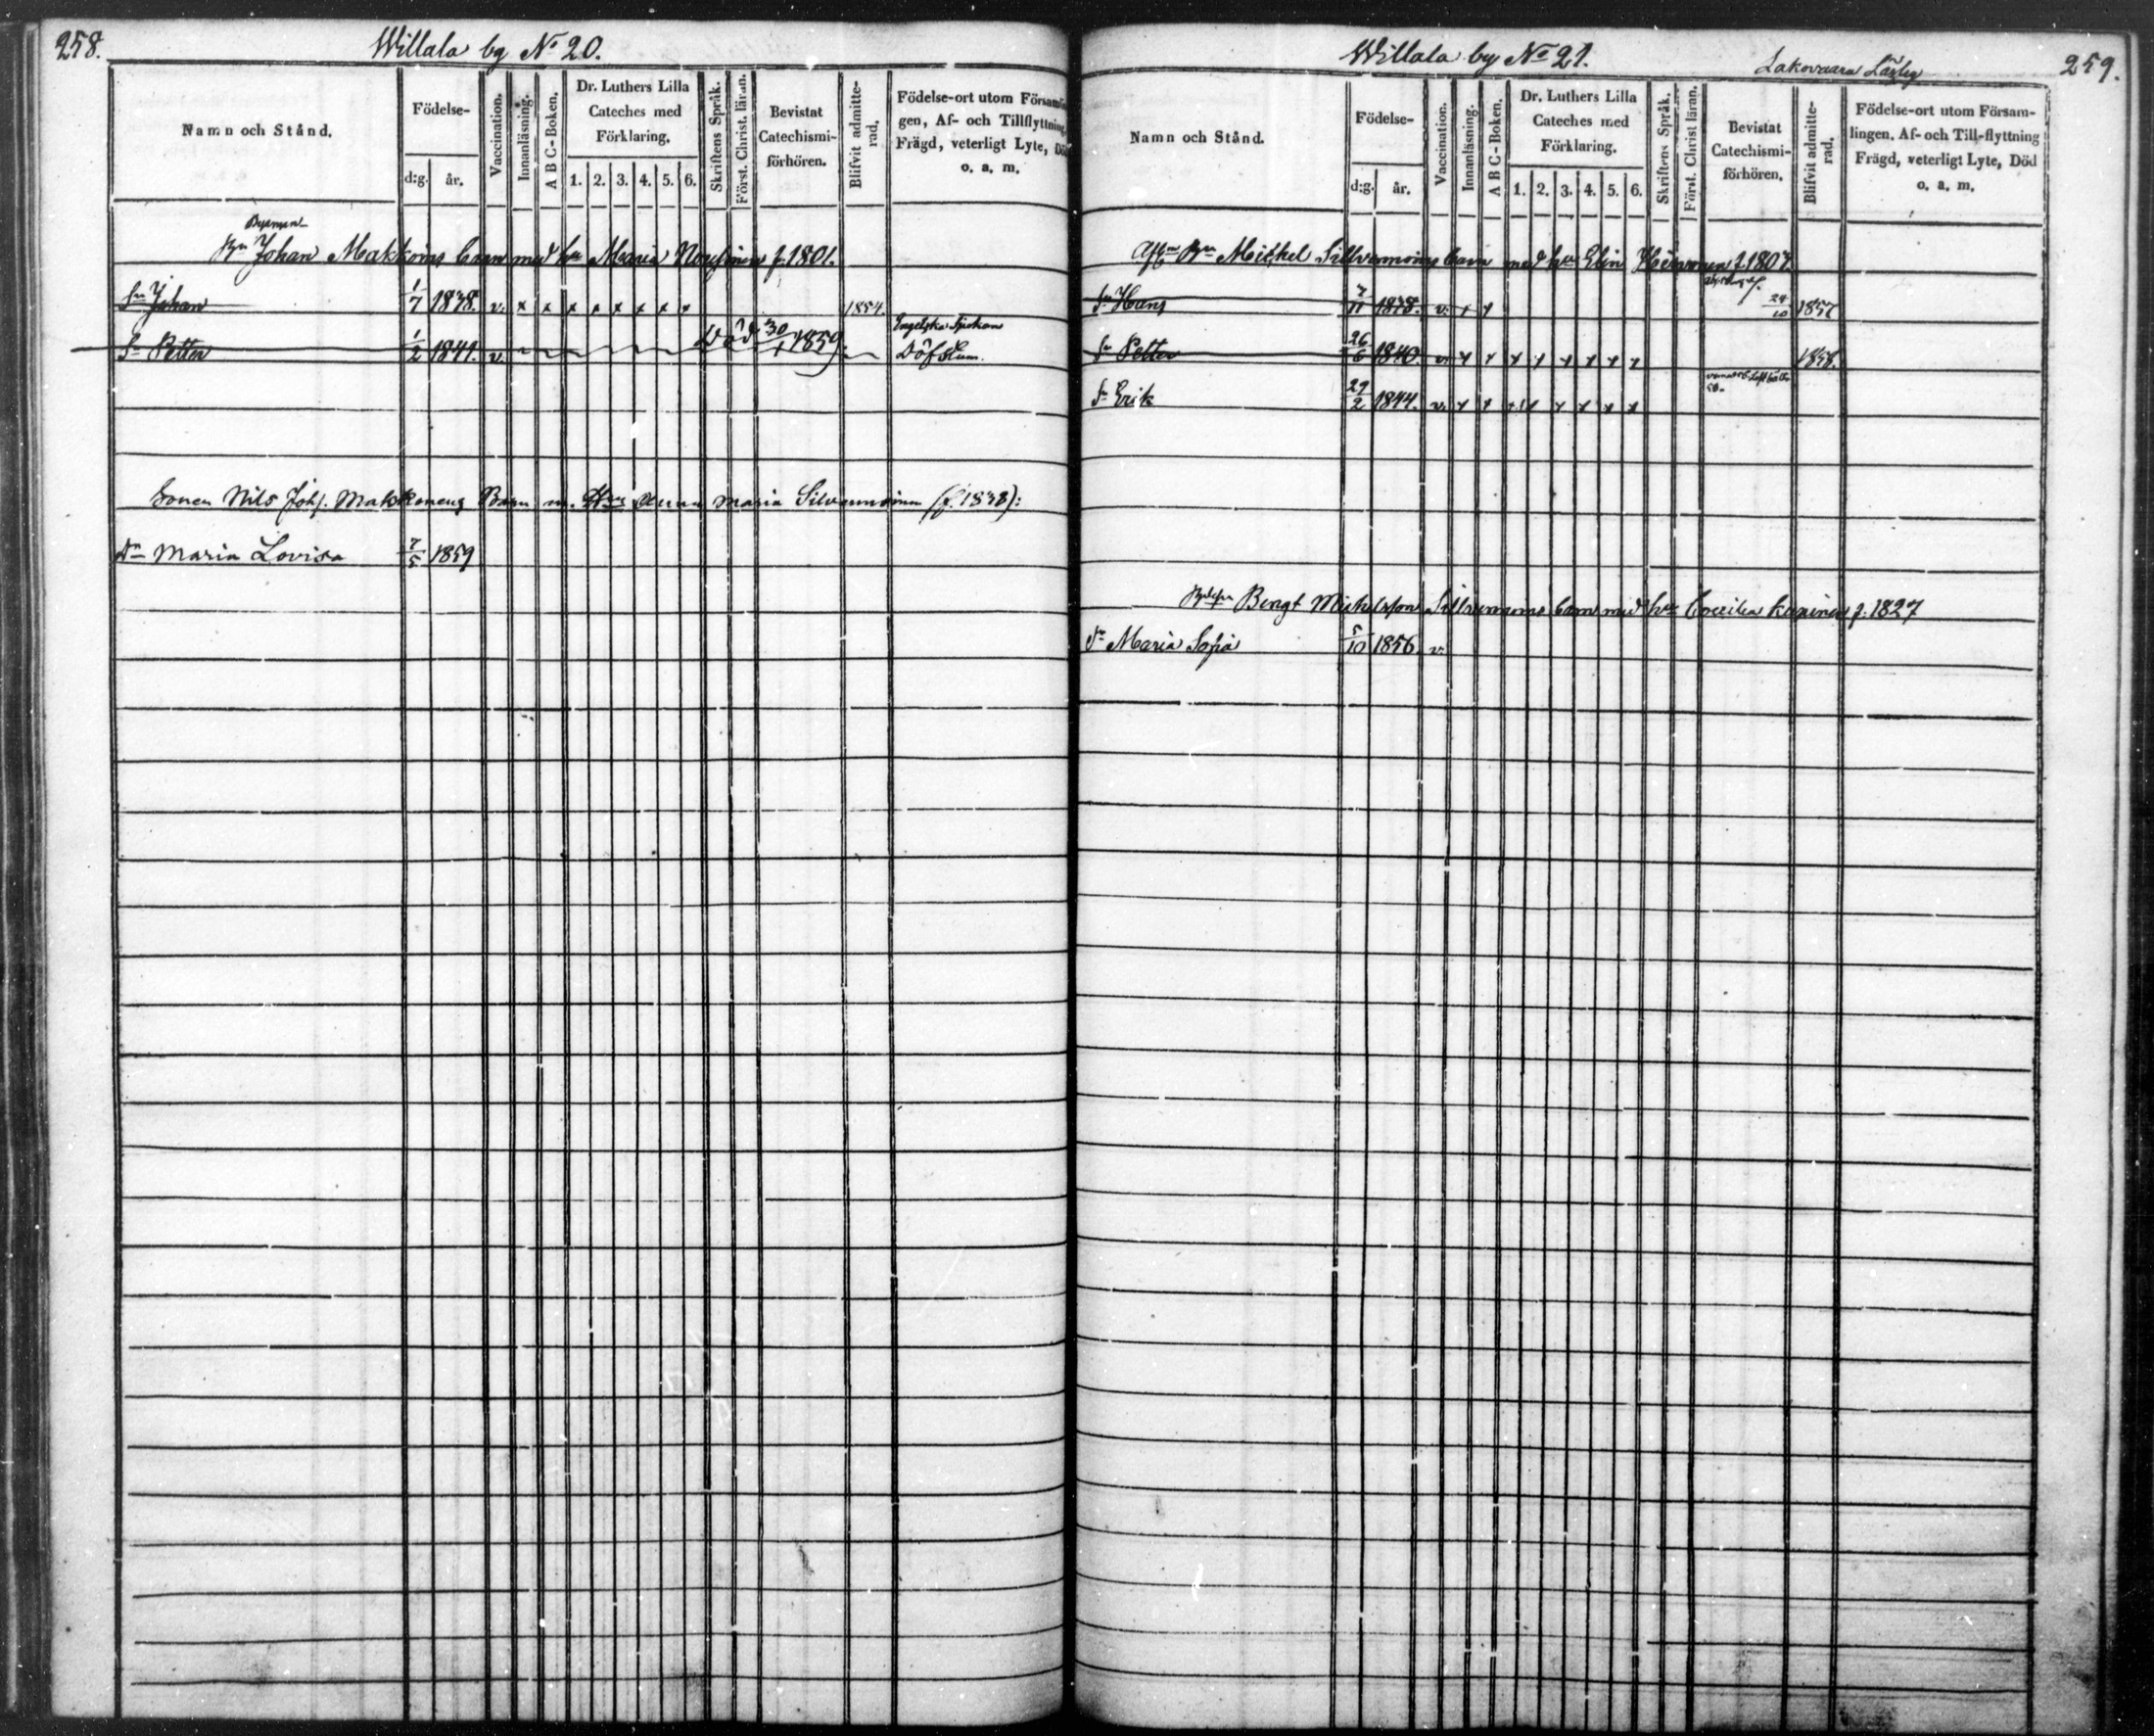 258.
Willala by No 20.
Namn och Stånd.
Födelse-
d:g. år.
Vaccination.
Innanläsning.
A B C-Boken.
Dr. Luthers Lilla
Cateches med
Förklaring.
1. 2. 3. 4. 5. 6.
Skriftens Språk.
Först. Christ. läran.
Bevistat
Catechismi-
förhören.
Blifvit admitte-
rad.
Födelse-ort utom Försam
gen, Af- och Tillflyttning
Frägd, veterligt Lyte, Död
o. a. m.
Johan Makkoins barn med hu Maria f. 1801.
Sn Johan 1/7 1838. v. x x x x x x x x 1854.
Död 30/1 1859.
Engelska Sjukan
Sn Petter 1/2 1841. v. Döfstum.
Sonen Nils Johs. Makkonens Barn m. Hus Anna Maria Silvennoinen (f. 1838):
Dr Maria Lovisa 7/5 1859
Willala by No 21.
Lakovaara Läslag
259.
Namn och Stånd.
Födelse-
d:g. år.
Vaccination.
Innanläsning.
A B C-Boken.
Dr. Luthers Lilla
Cateches med
Förklaring.
1. 2. 3. 4. 5. 6.
Skriftens Språk.
Först. Christ läran.
Bevistat
Catechismi-
förhören.
Blifvit admitte-
rad,
Födelse-ort utom Försam-
lingen, Af- och Till-flyttning
Frägd, veterligt Lyte, Död
o. a. m.
Michel Sillvennoins barn med hu Elin f. 1807.
Sn Hans 7/11 1838. v. x x 29/10 1857
Sn Petter 26/6 1840. v. x x x x x x x x 1858.
Sn Erik 29/2 1844. v. x x x x x x x x
Bengt Michelsson Sillvennoins barn med hu Coecilia f. 1827
Dr Maria Sofia 5/10 1856. v.